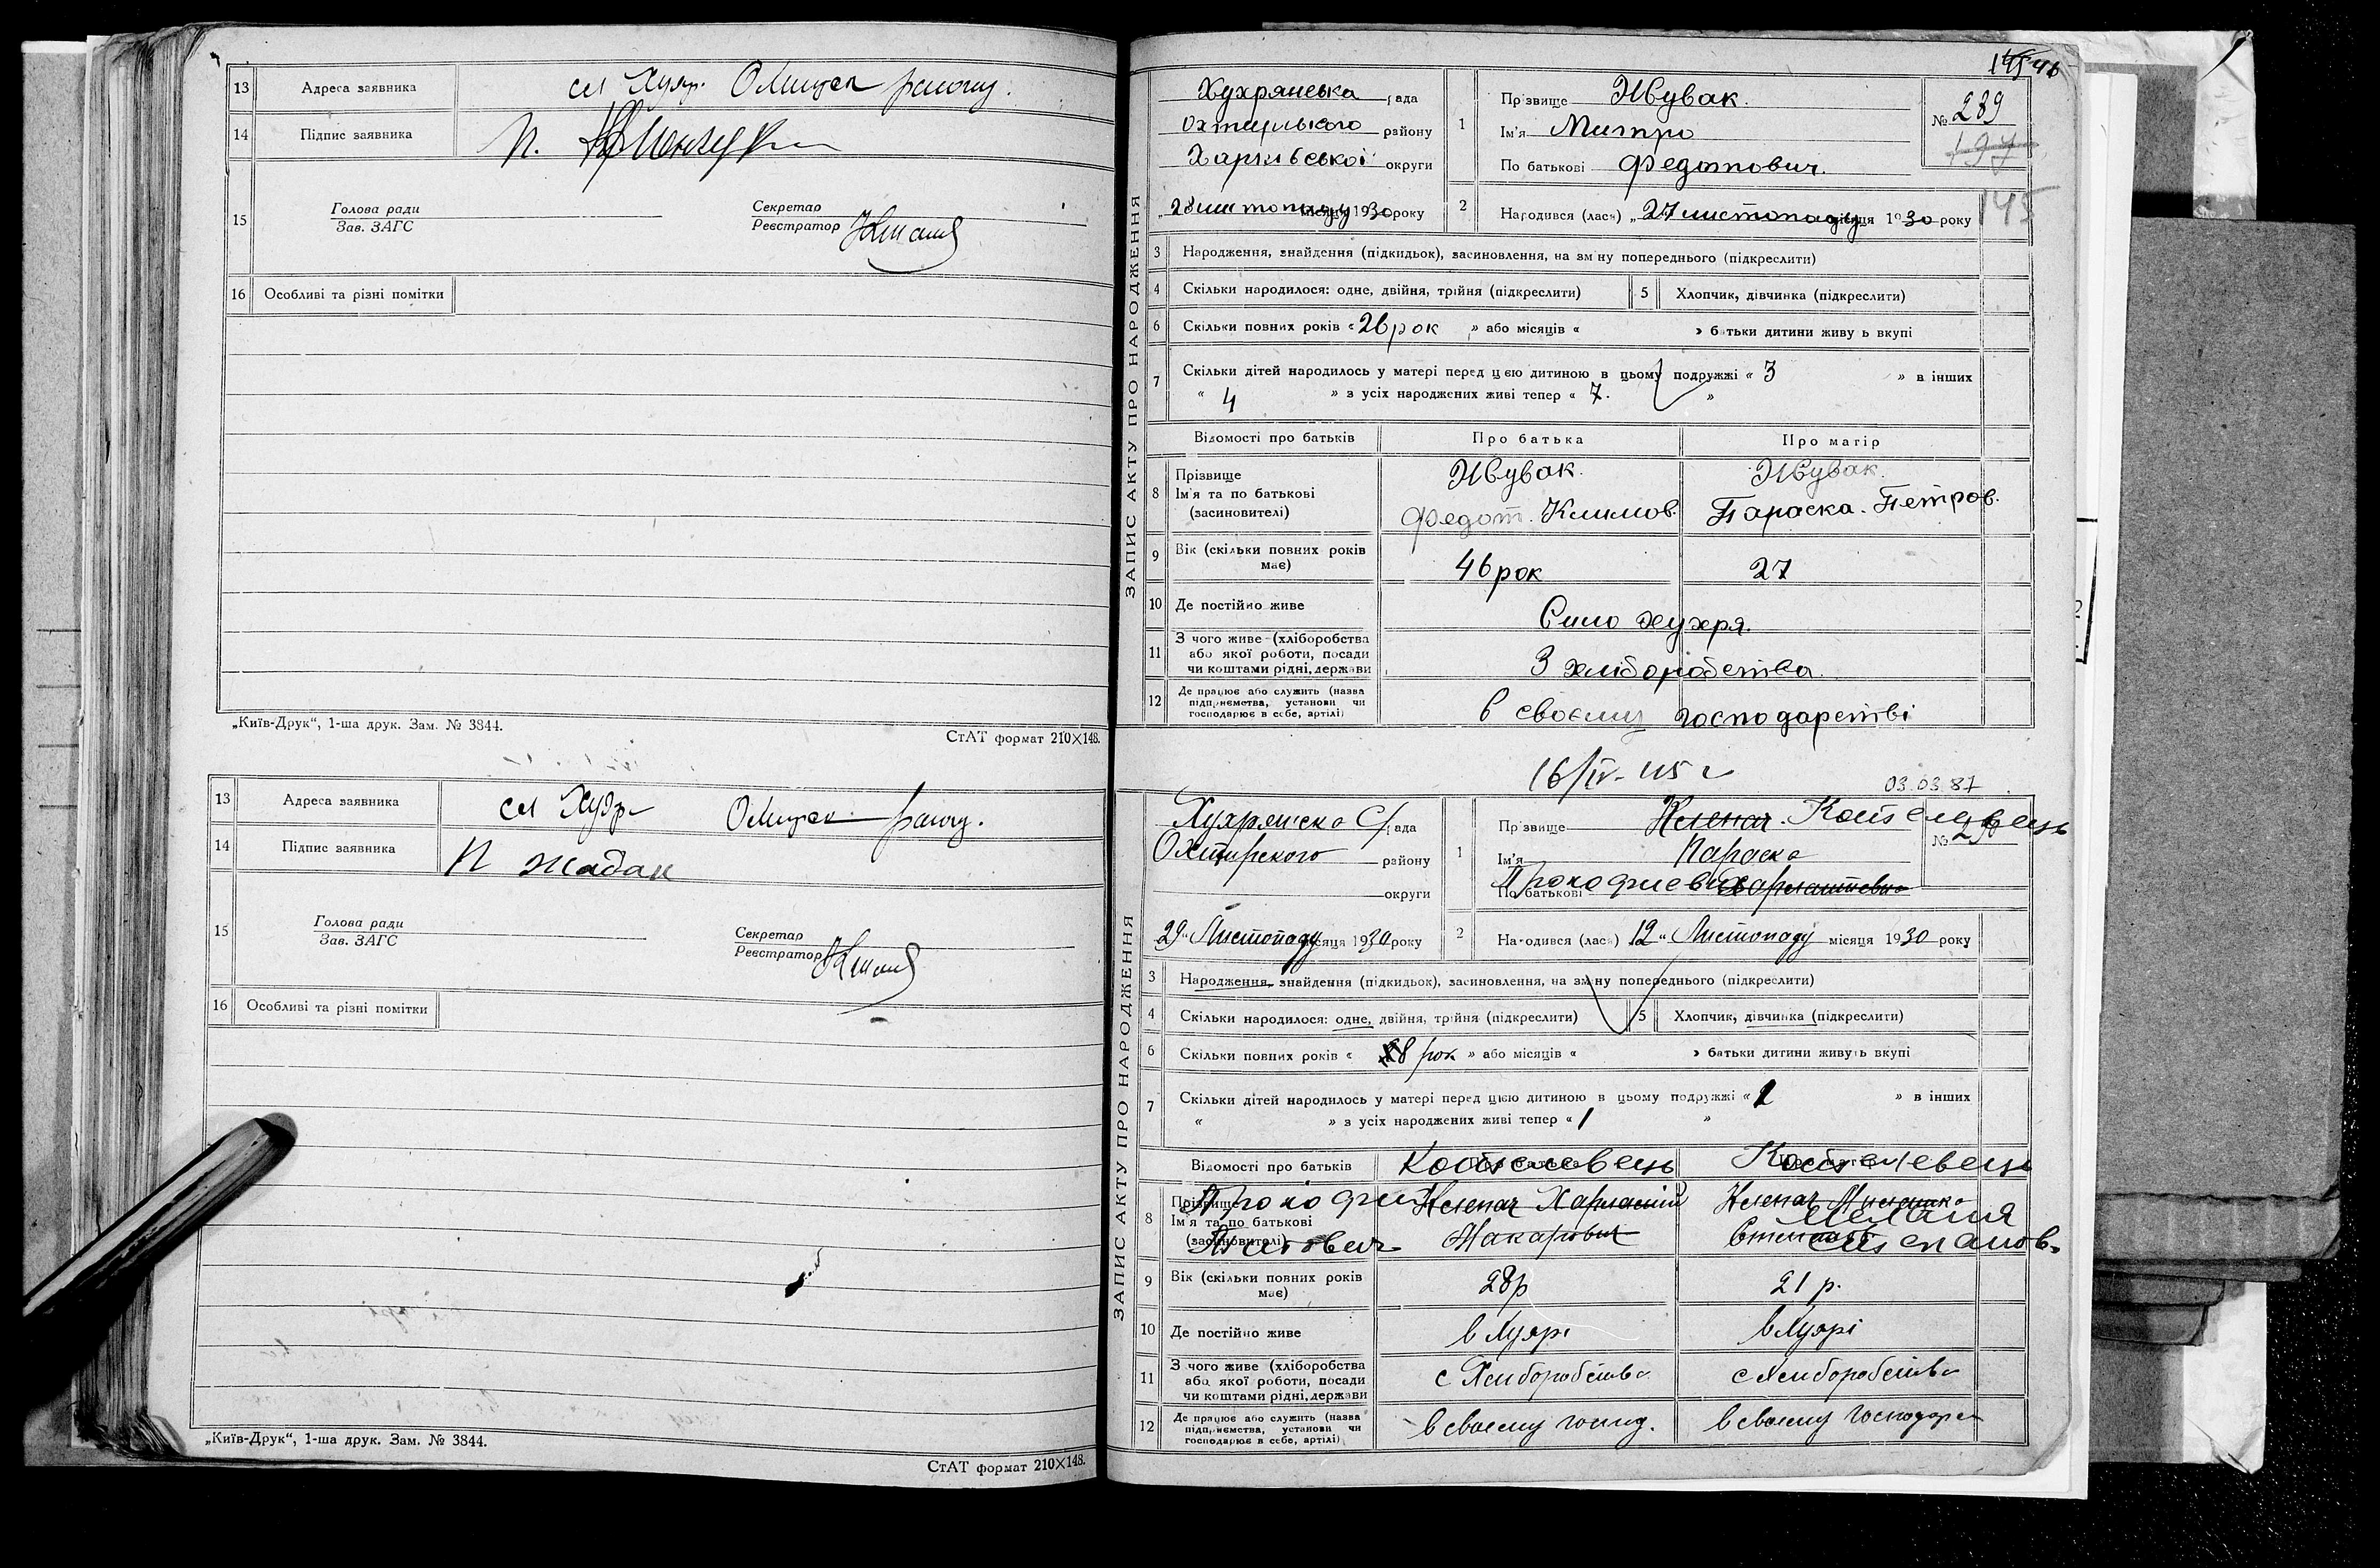 13 Адреса заявника
14 Підпис заявника
15 Голова ради
Зав. ЗАГС
Секретар
Реєстратор
16 Особливі та різні помітки
„Київ-Друк“, 1-ша друк. Зам. № 3844.
СтАТ формат 210×148.
13 Адреса заявника
14 Підпис заявника П Жадан
15 Голова ради
Зав. ЗАГС
Секретар
Реєстратор
16 Особливі та різні помітки
„Київ-Друк“, 1-ша друк. Зам. № 3844.
СтАТ формат 210×148.
ЗАПИС АКТУ ПРО НАРОДЖЕННЯ
Хухрянська рада
району
Харківської округи
28 листопаду місяця 1930 року
1 Прізвище Ивувак.
Ім'я Митро
По батькові Федотович.
№ 289
197
145
2 Народився (лась) „27 листопаду місяця 1930 року
3 Народження, знайдення (підкидьок), засиновлення, на зміну попереднього (підкреслити)
4 Скільки народилося: одне, двійня, трійня (підкреслити)
5 Хлопчик, дівчинка (підкреслити)
6 Скільки повних років « 26 рок » або місяців « » батьки дитини живуть вкупі
7 Скільки дітей народилось у матері перед цією дитиною в цьому подружжі « 3 » в інших
« 4 » з усіх народжених живі тепер « 7. »
Відомості про батьків Про батька Про матір
8 Прізвище
Ім'я та по батькові
(засиновителі)
Ивувак.
Федот. Климов.
Ивувак.
Параска. Петров.
9 Вік (скільки повних років
має) 46 рок 27
10 Де постійно живе Село хухря.
11 З чого живе (хліборобства
або якої роботи, посади
чи коштами рідні, держави
З хліборобства.
12 Де працює або служить (назва
підприємства, установи чи
господарює в себе, артілі)
в своєму господарстві
16/IV-45 г
03.03.87
ЗАПИС АКТУ ПРО НАРОДЖЕННЯ
рада
Охтирского району
округи
29 „ Листопаду місяця 1930 року
1 Прізвище Келепач. Котелевець
Ім'я Параска
По батькові Прокофиевна
№
2 Народився (лась) 12 „ Листопаду місяця 1930 року
3 Народження, знайдення (підкидьок), засиновлення, на зміну попереднього (підкреслити)
4 Скільки народилося: одне, двійня, трійня (підкреслити)
5 Хлопчик, дівчинка (підкреслити)
6 Скільки повних років « 8 рок » або місяців « » батьки дитини живуть вкупі
7 Скільки дітей народилось у матері перед цією дитиною в цьому подружжі « » в інших
« » з усіх народжених живі тепер « 1 »
Відомості про батьків Котелевець Котелевець
8 Прізвище
Ім'я та по батькові
(засиновителі)
Прокофий
Макарович
Мелания
Степанов.
9 Вік (скільки повних років
має) 28р 21 р.
10 Де постійно живе в Хухрі в Хухрі
11 З чого живе (хліборобства
або якої роботи, посади
чи коштами рідні, держави
с Хлиборобства с Хлиборобства
12 Де працює або служить (назва
підприємства, установи чи
господарює в себе, артілі)
в своему госпд. в своему